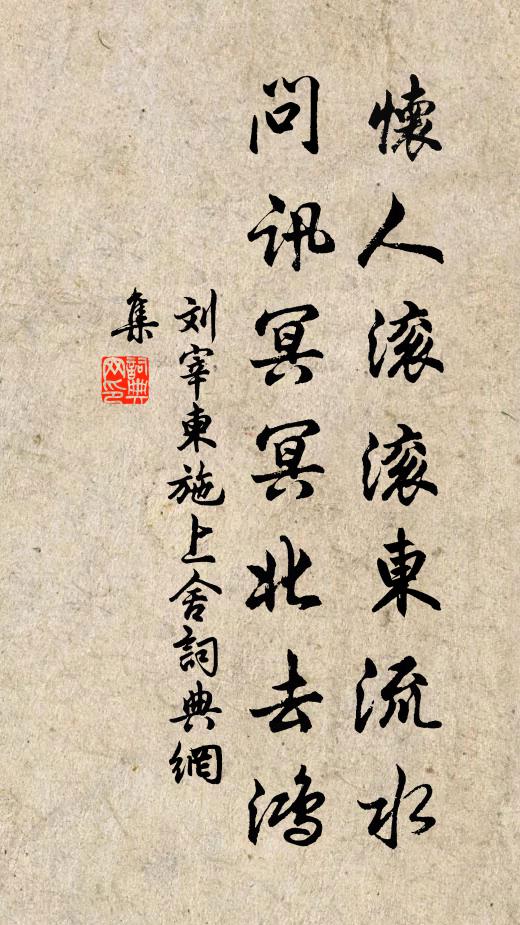 懷人滚滚東流水
問訊冥冥北去鴻
刘宰東施上舍詞典網
集
詞典网印